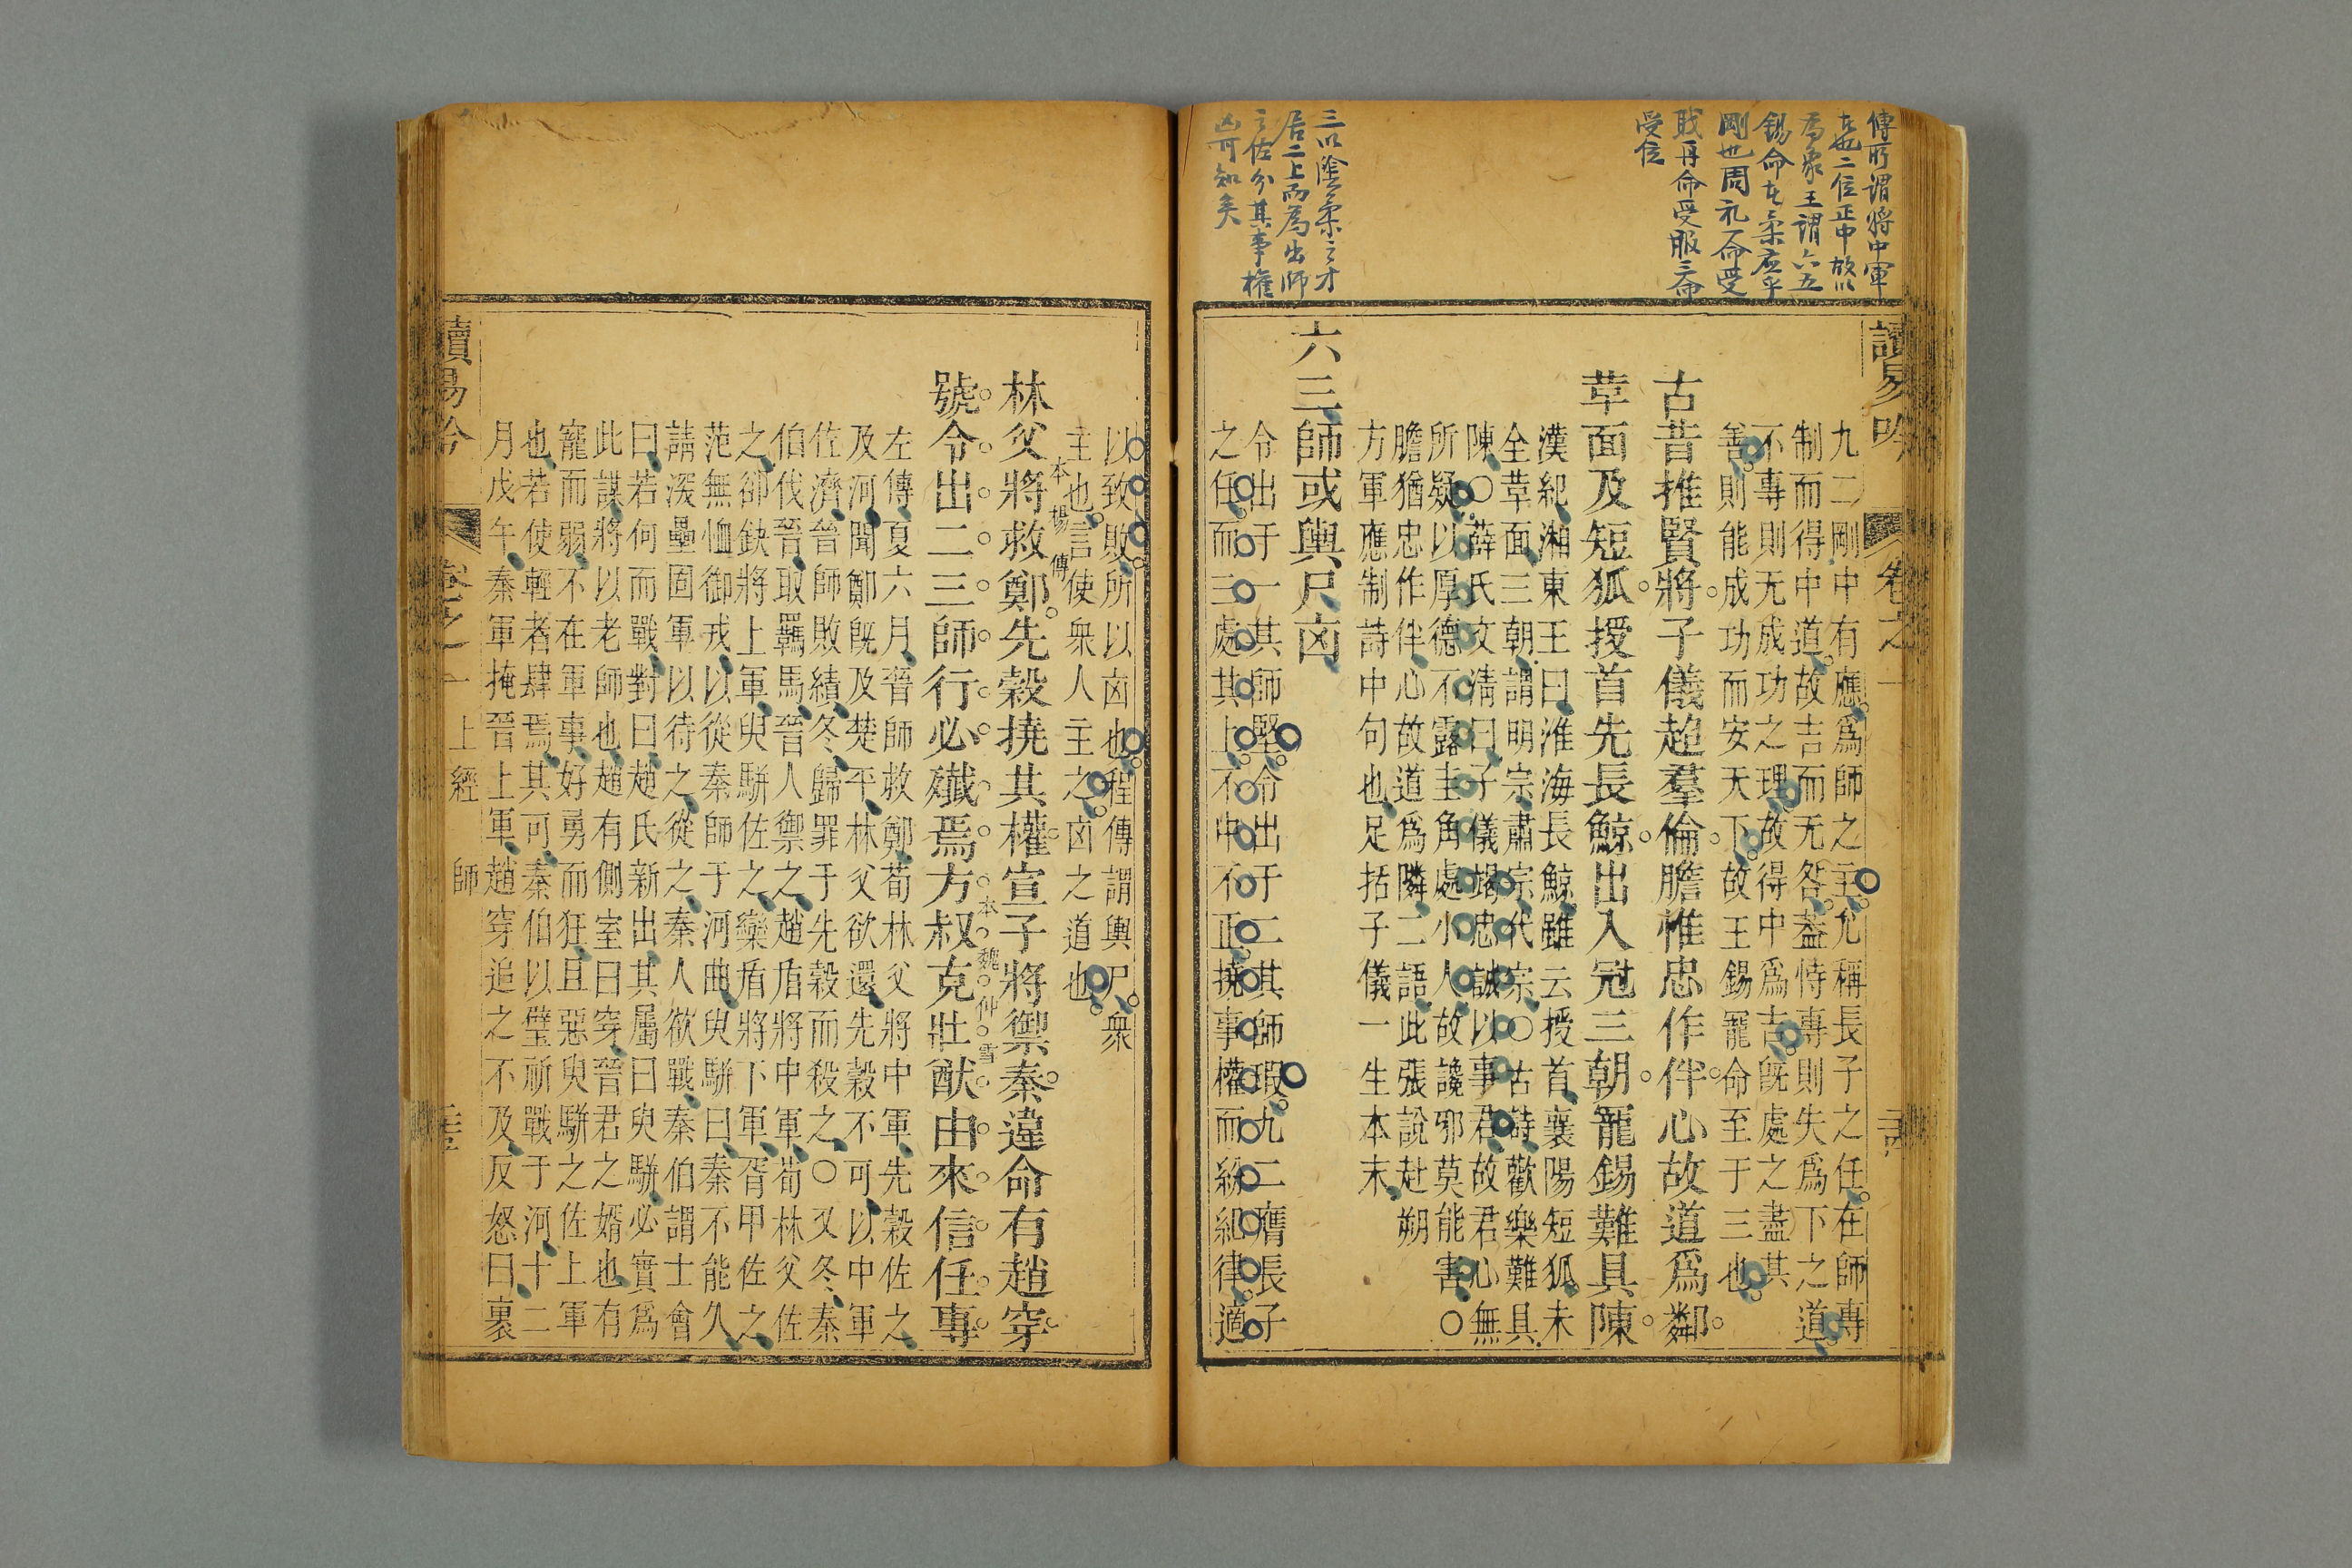 傳所謂將中軍
在也二位正中故以
爲象王謂六五
錫命在柔應乎
剛也周礼一命受
戝再命受服三命
受位
三以陰柔之才
居二上而爲出師
之佐分其事權
凶可知矣
讀易吟
卷之一
九二剛中有應爲師之主尤稱長子之任在師專
制而得中道故吉而无咎蓋恃專則失爲下之道
不專則无成功之理故得中爲古旣處之盡其
善則能成功而安天下故王錫寵命至于三也
古昔推賢將子儀超羣倫膽惟忠作伴心故道爲鄰
革面及短狐授首先長鯨出入冠三朝寵錫難具陳
漢紀湘東王曰淮海長鯨雖云授首襄陽短狐未
全革面三朝謂明宗肅宗代宗○古詩歡樂難具
陳○薛氏文淸曰子儀竭忠誠以事君故君心無
所疑以厚德不露圭角處小人故讒邪莫能害○
膽猶忠作伴心故道爲隣二語此張說赴朔
方軍應制詩中句也足括子儀一生本末
六三師或輿尸凶
令出于一其師堅令出于二其師瑕九二膺長子
之任而三處其上不中不正撓事權而紛紀律適
以致敗所以凶也程傳謂輿尸衆
主也言使衆人主之凶之道也
林父將救鄭先縠撓其權宣子將禦秦違命有趙穿
本楊傳
號令出二三師行必殲焉方叔克壯猷由來信任專
本魏仲雪
左傳夏六月晉師救鄭荀林父將中軍先縠佐之
及河聞鄭旣及楚平林父欲還先縠不可以中軍
佐濟晉師敗績冬歸罪于先縠而殺之○又冬秦
伯伐晉取羈馬晉人禦之趙盾將中軍荀林父佐
之郤缺將上軍臾駢佐之欒盾將下軍胥甲佐之
范無恤御戎以從秦師于河曲臾駢曰秦不能久
請深壘固軍以待之從之秦人欲戰秦伯謂士會
曰若何而戰對曰趙氏新出其屬曰臾駢必實爲
此謀將以老師也趙有側室曰穿晉君之婿也有
寵而弱不在軍事好勇而狂且惡臾駢之佐上軍
也若使輕者肆焉其可秦伯以璧祈戰于河十二
月戊午秦軍掩晉上軍趙穿追之不及反怒曰裹
讀易吟
卷之一
上經
師